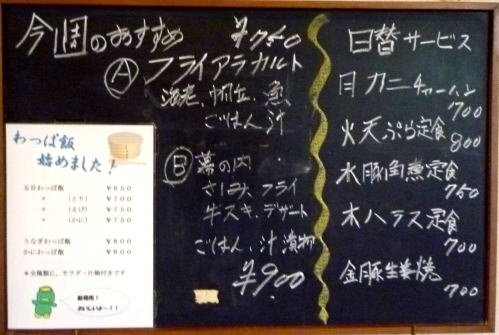 今週のおすすめ ¥750
Ⓐ フライアラカルト
海老、帆立、魚
ごはん、汁
Ⓑ 幕の内
さしみ、フライ
牛スキ、デザート
ごはん、汁、漬物
¥900
日替サービス
月 カニチャーハン
700
火 天ぷら定食
800
水 豚角煮定食
750
木 ハラス定食
700
金 豚生姜焼
700
わっぱ飯
始めました!
五目わっぱ飯 ¥650
〃 (とり) ¥700
〃 (えび) ¥750
〃 (かに) ¥750
うなぎわっぱ飯 ¥800
かにわっぱ飯 ¥800
*全種類に、サラダ・汁物付きです
新発売!
おいしいよ~!!